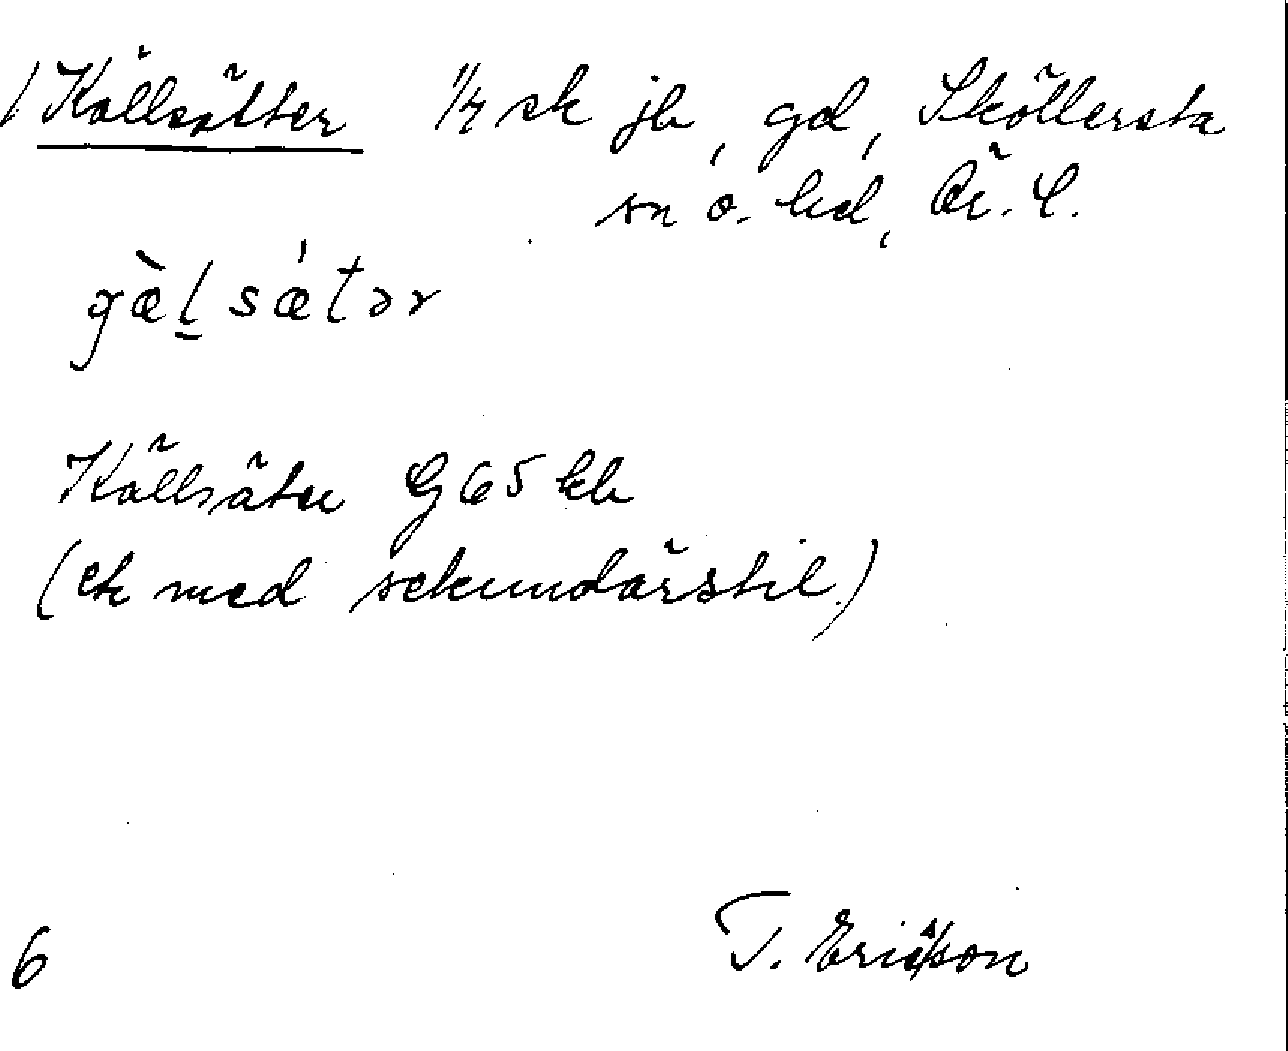 / Källsätter 1/4 sk jb, gd, Sköllersta
sn o. hd, Ör. L.
Källsäter G 65 kb
(ek med sekundärstil)
6 T. Ericsson